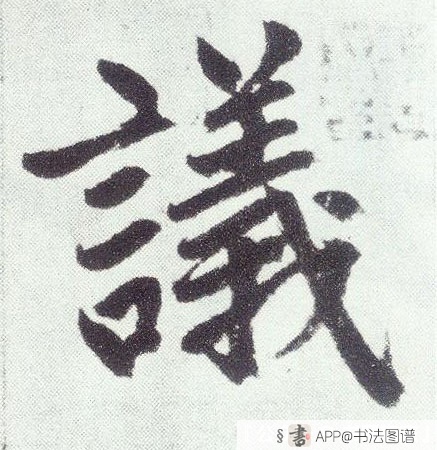 議
§書 APP@书法图谱